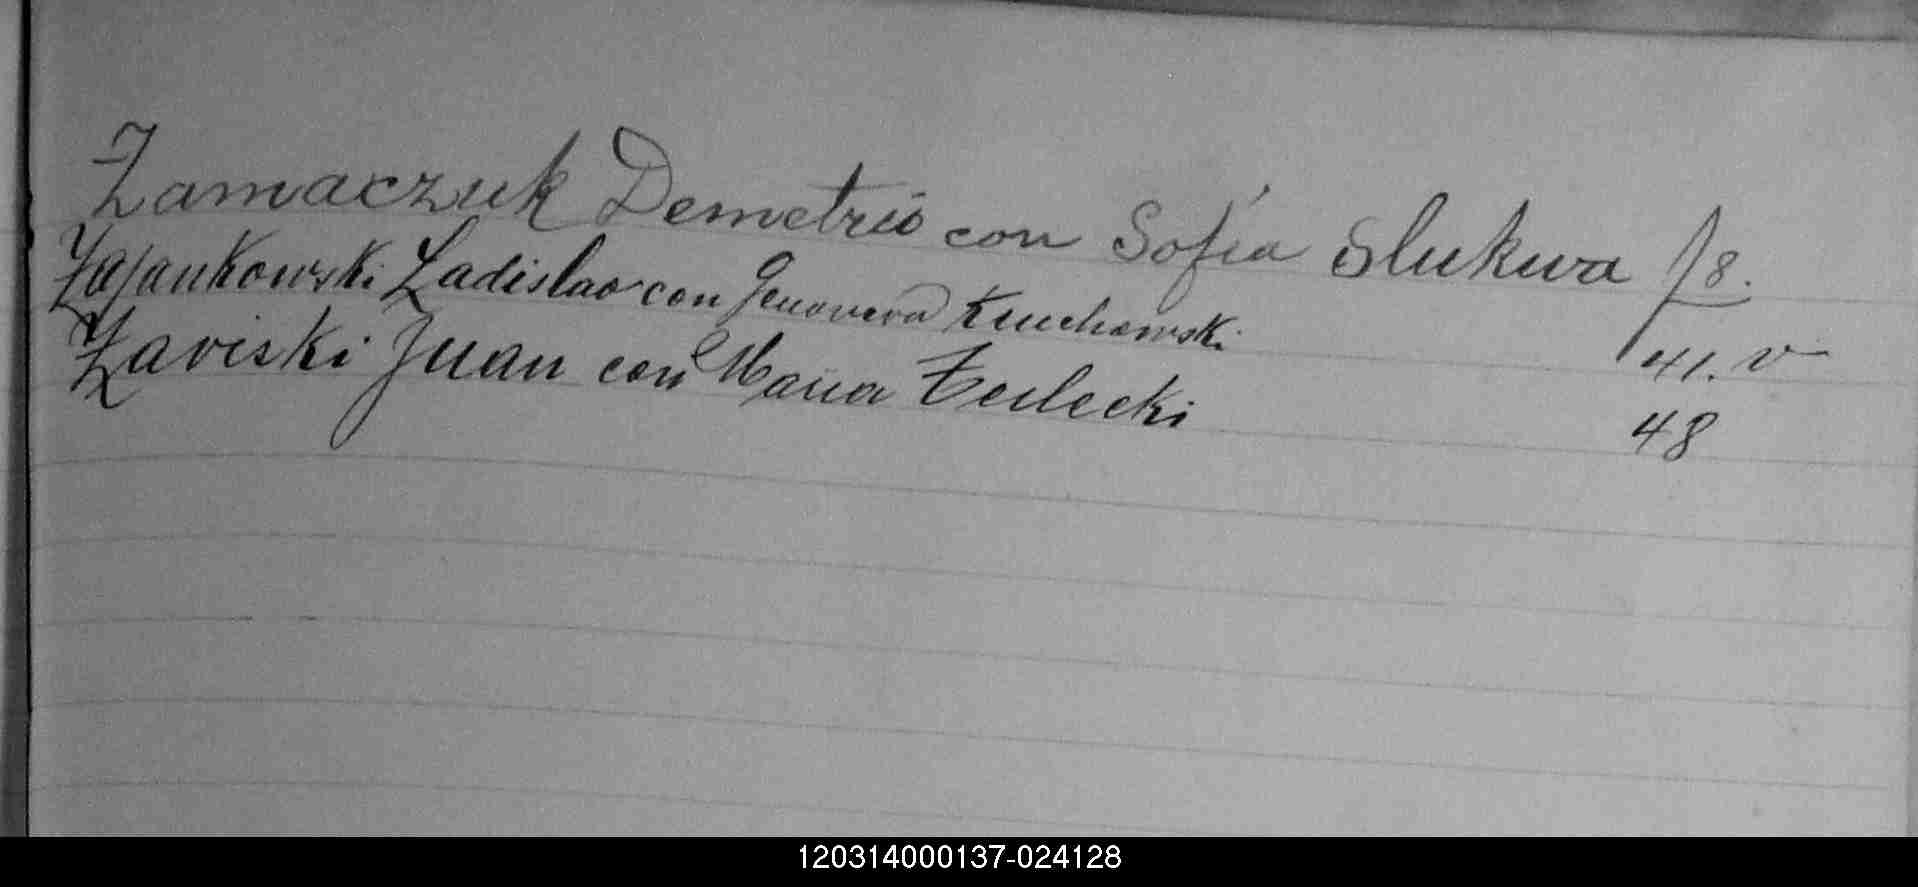 Zamaczuk Demetrio con Sofía Slukwa f 8.
Zajankowski Ladislao con Genoveva Kuichowski 41. v
Zaviski Juan con Maria Terlecki 48
120314000137-024128